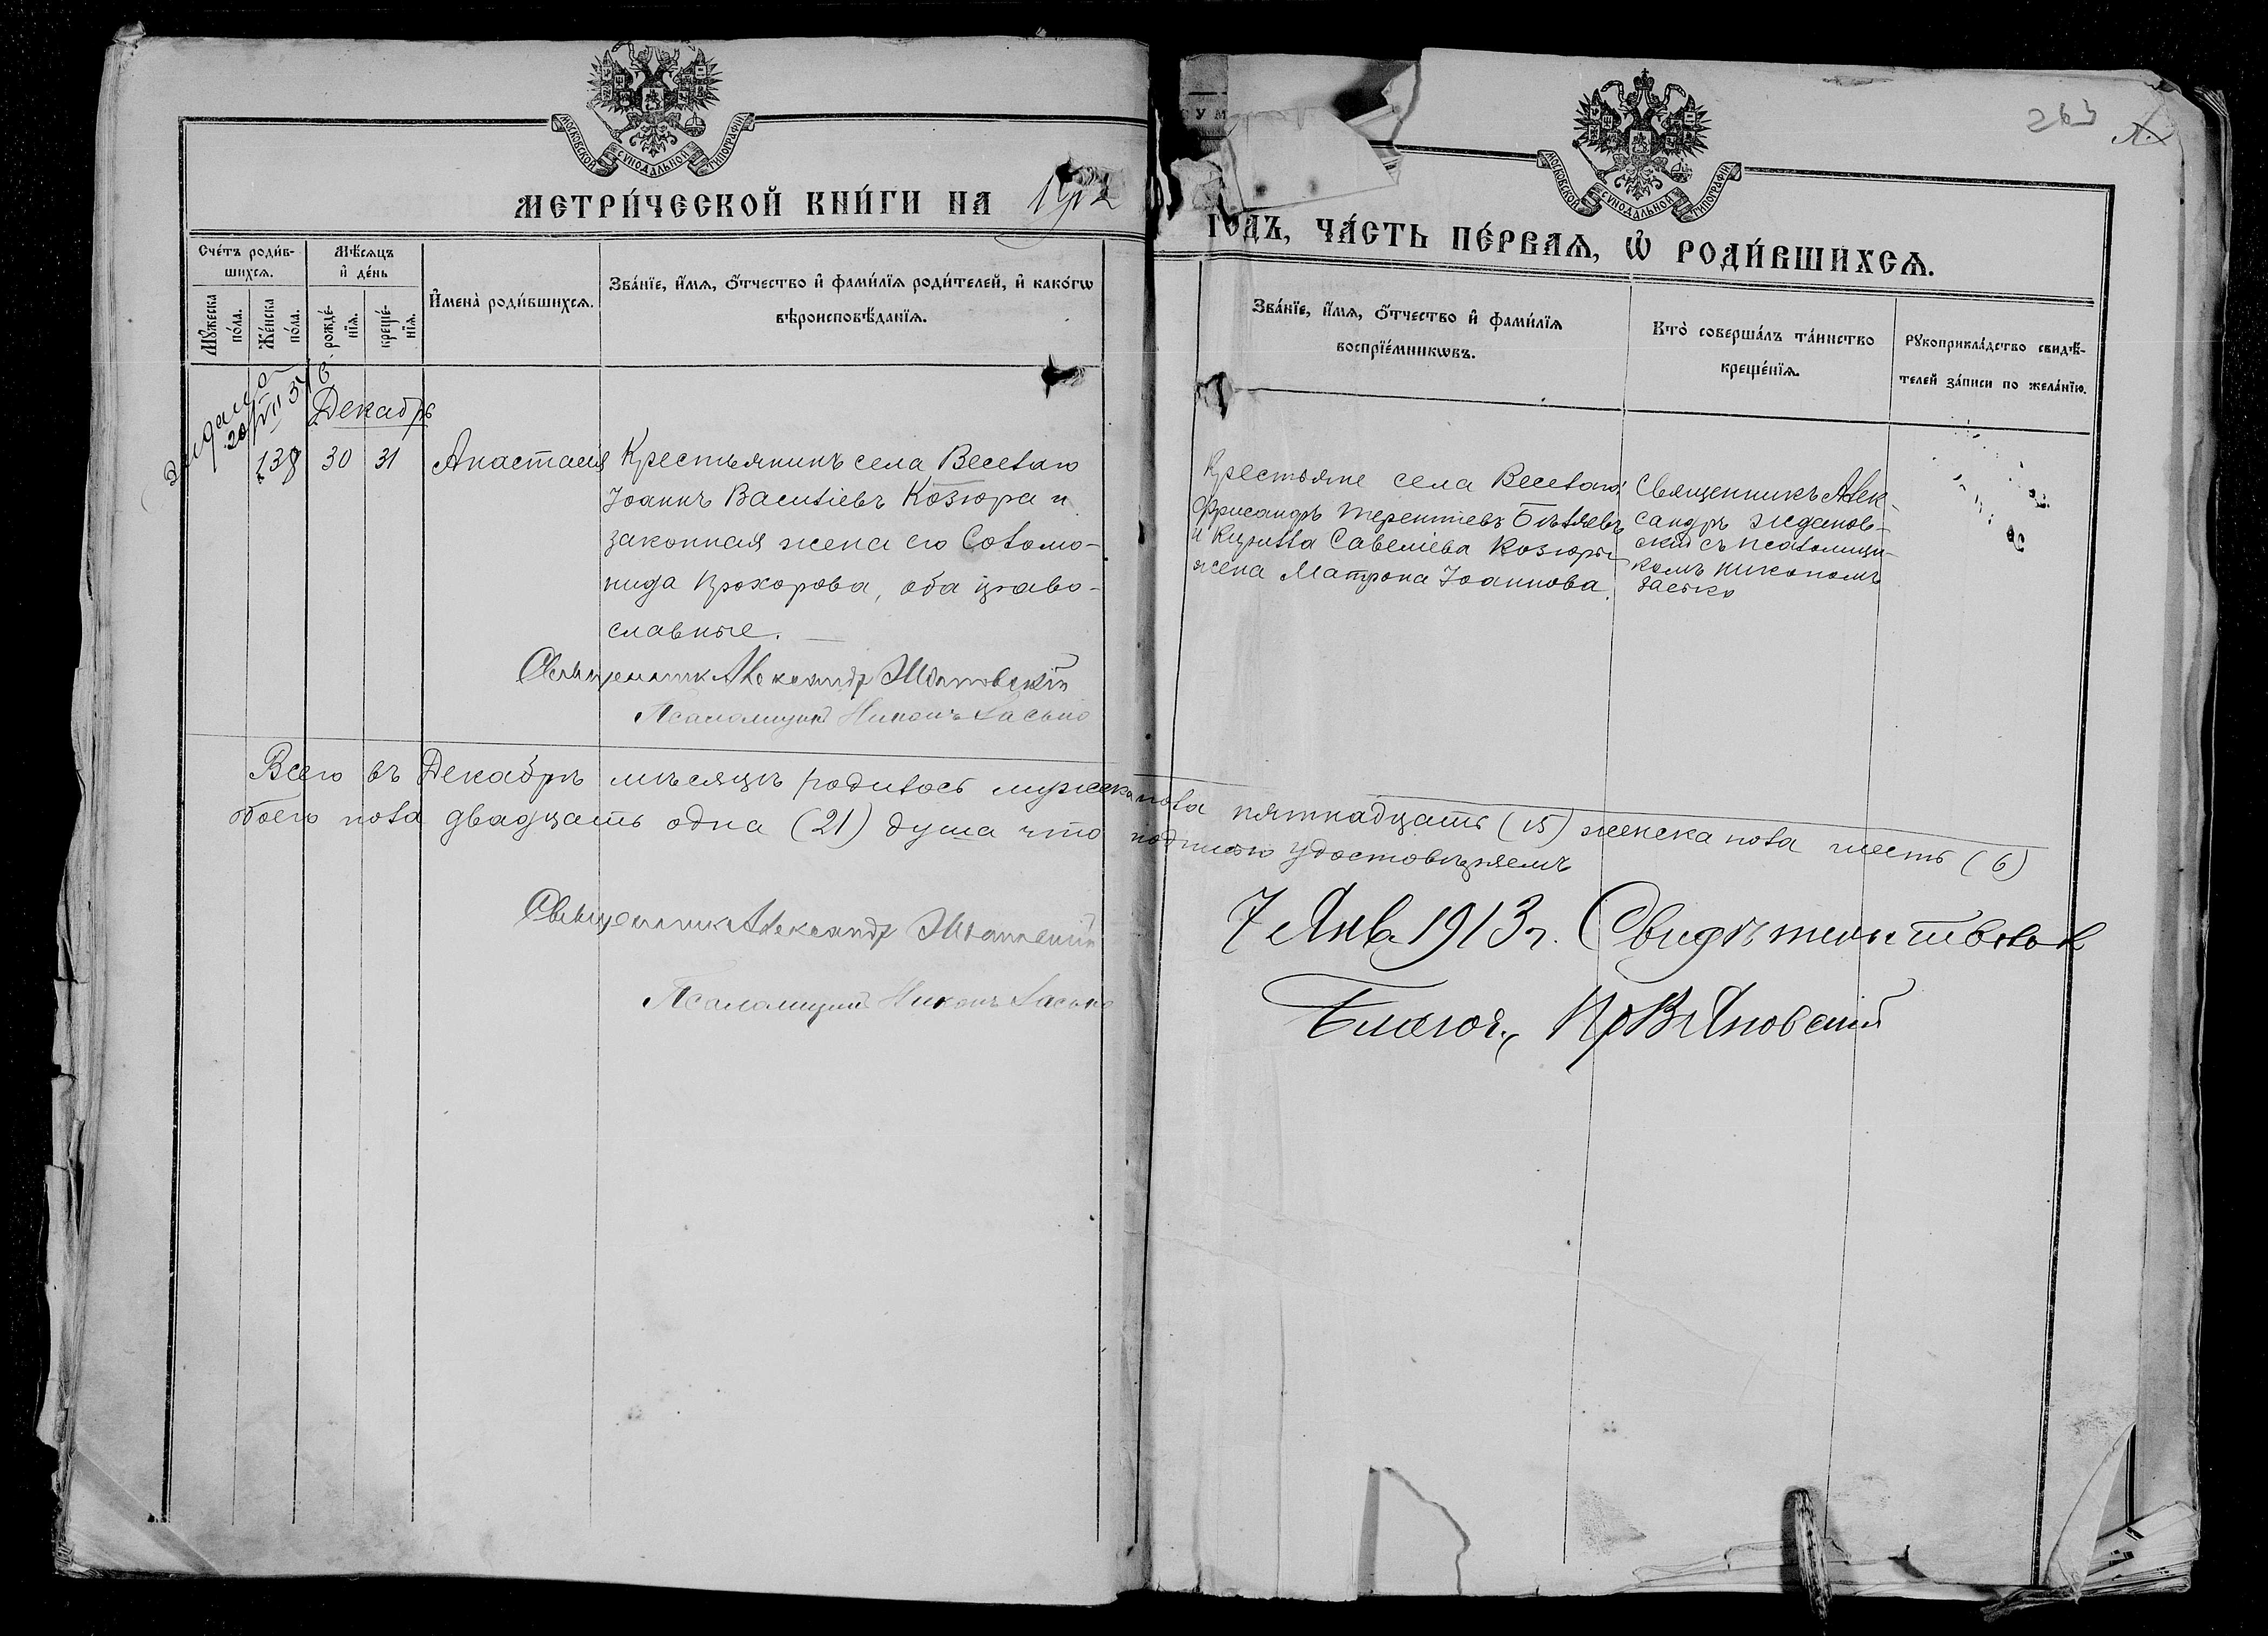 МОСКОВСКОЙ СѴНОДАЛЬНОЙ ТИПОГРАФІИ
МЕТРИ́ЧЕСКОЙ КНИ́ГИ НА 1912
Сче́тъ роди́в-
шихсѧ.
Мѣ́сѧцъ
и҆ де́нь
Мꙋ́жеска
по́ла.
Же́нска
по́ла.
рожде́-
нїѧ.
креще́-
нїѧ.
И҆мена̀ роди́вшихсѧ.
Зва́нїе, и҆́мѧ, ѻ҆́тчество и҆ фами́лїѧ роди́телей, и҆ како́гѡ
вѣроисповѣ́данїѧ.
Декабрь
138 30 31 Анастасія
Крестьянинъ села Веселаго
Іоаннъ Василіевъ Козюра и
законная жена его Соломо-
нида Прохорова, оба право-
славные.
Священник Александр Ждановскій
Псаломщикъ Никонъ Ласько
Всего въ Декабрѣ мѣсяцѣ родилось мужеска пола пятнадцать (15) женска пола шесть (6)
обоего пола двадцать одна (21) душа что подписью удостовѣряемъ
Священник Александр Ждановскій
Псаломщикъ Никонъ Ласько
263
МОСКОВСКОЙ СѴНОДАЛЬНОЙ ТИПОГРАФІИ
ГОДЪ, ЧА́СТЬ ПЕ́РВАѦ, Ѡ҆ РОДИ́ВШИХСѦ.
Зва́нїе, и҆́мѧ, ѻ҆́тчество и҆ фами́лїѧ
воспрїе́мникѡвъ.
Кто̀ соверша́лъ та́инство
креще́нїѧ.
Рꙋкоприкла́дство свидѣ́-
телей за́писи по жела́нїю.
Крестьяне села Веселаго:
Терентіевъ Бѣляевъ
и Кирилла Савеліева Козюры
жена Матрона Іоаннова.
Священникъ Алек-
сандръ Жданов-
скій съ псаломщи-
комъ Никономъ
Ласько
7 Янв 1913 г. Свидѣтельствовал
Благоч., Пр В Яновский